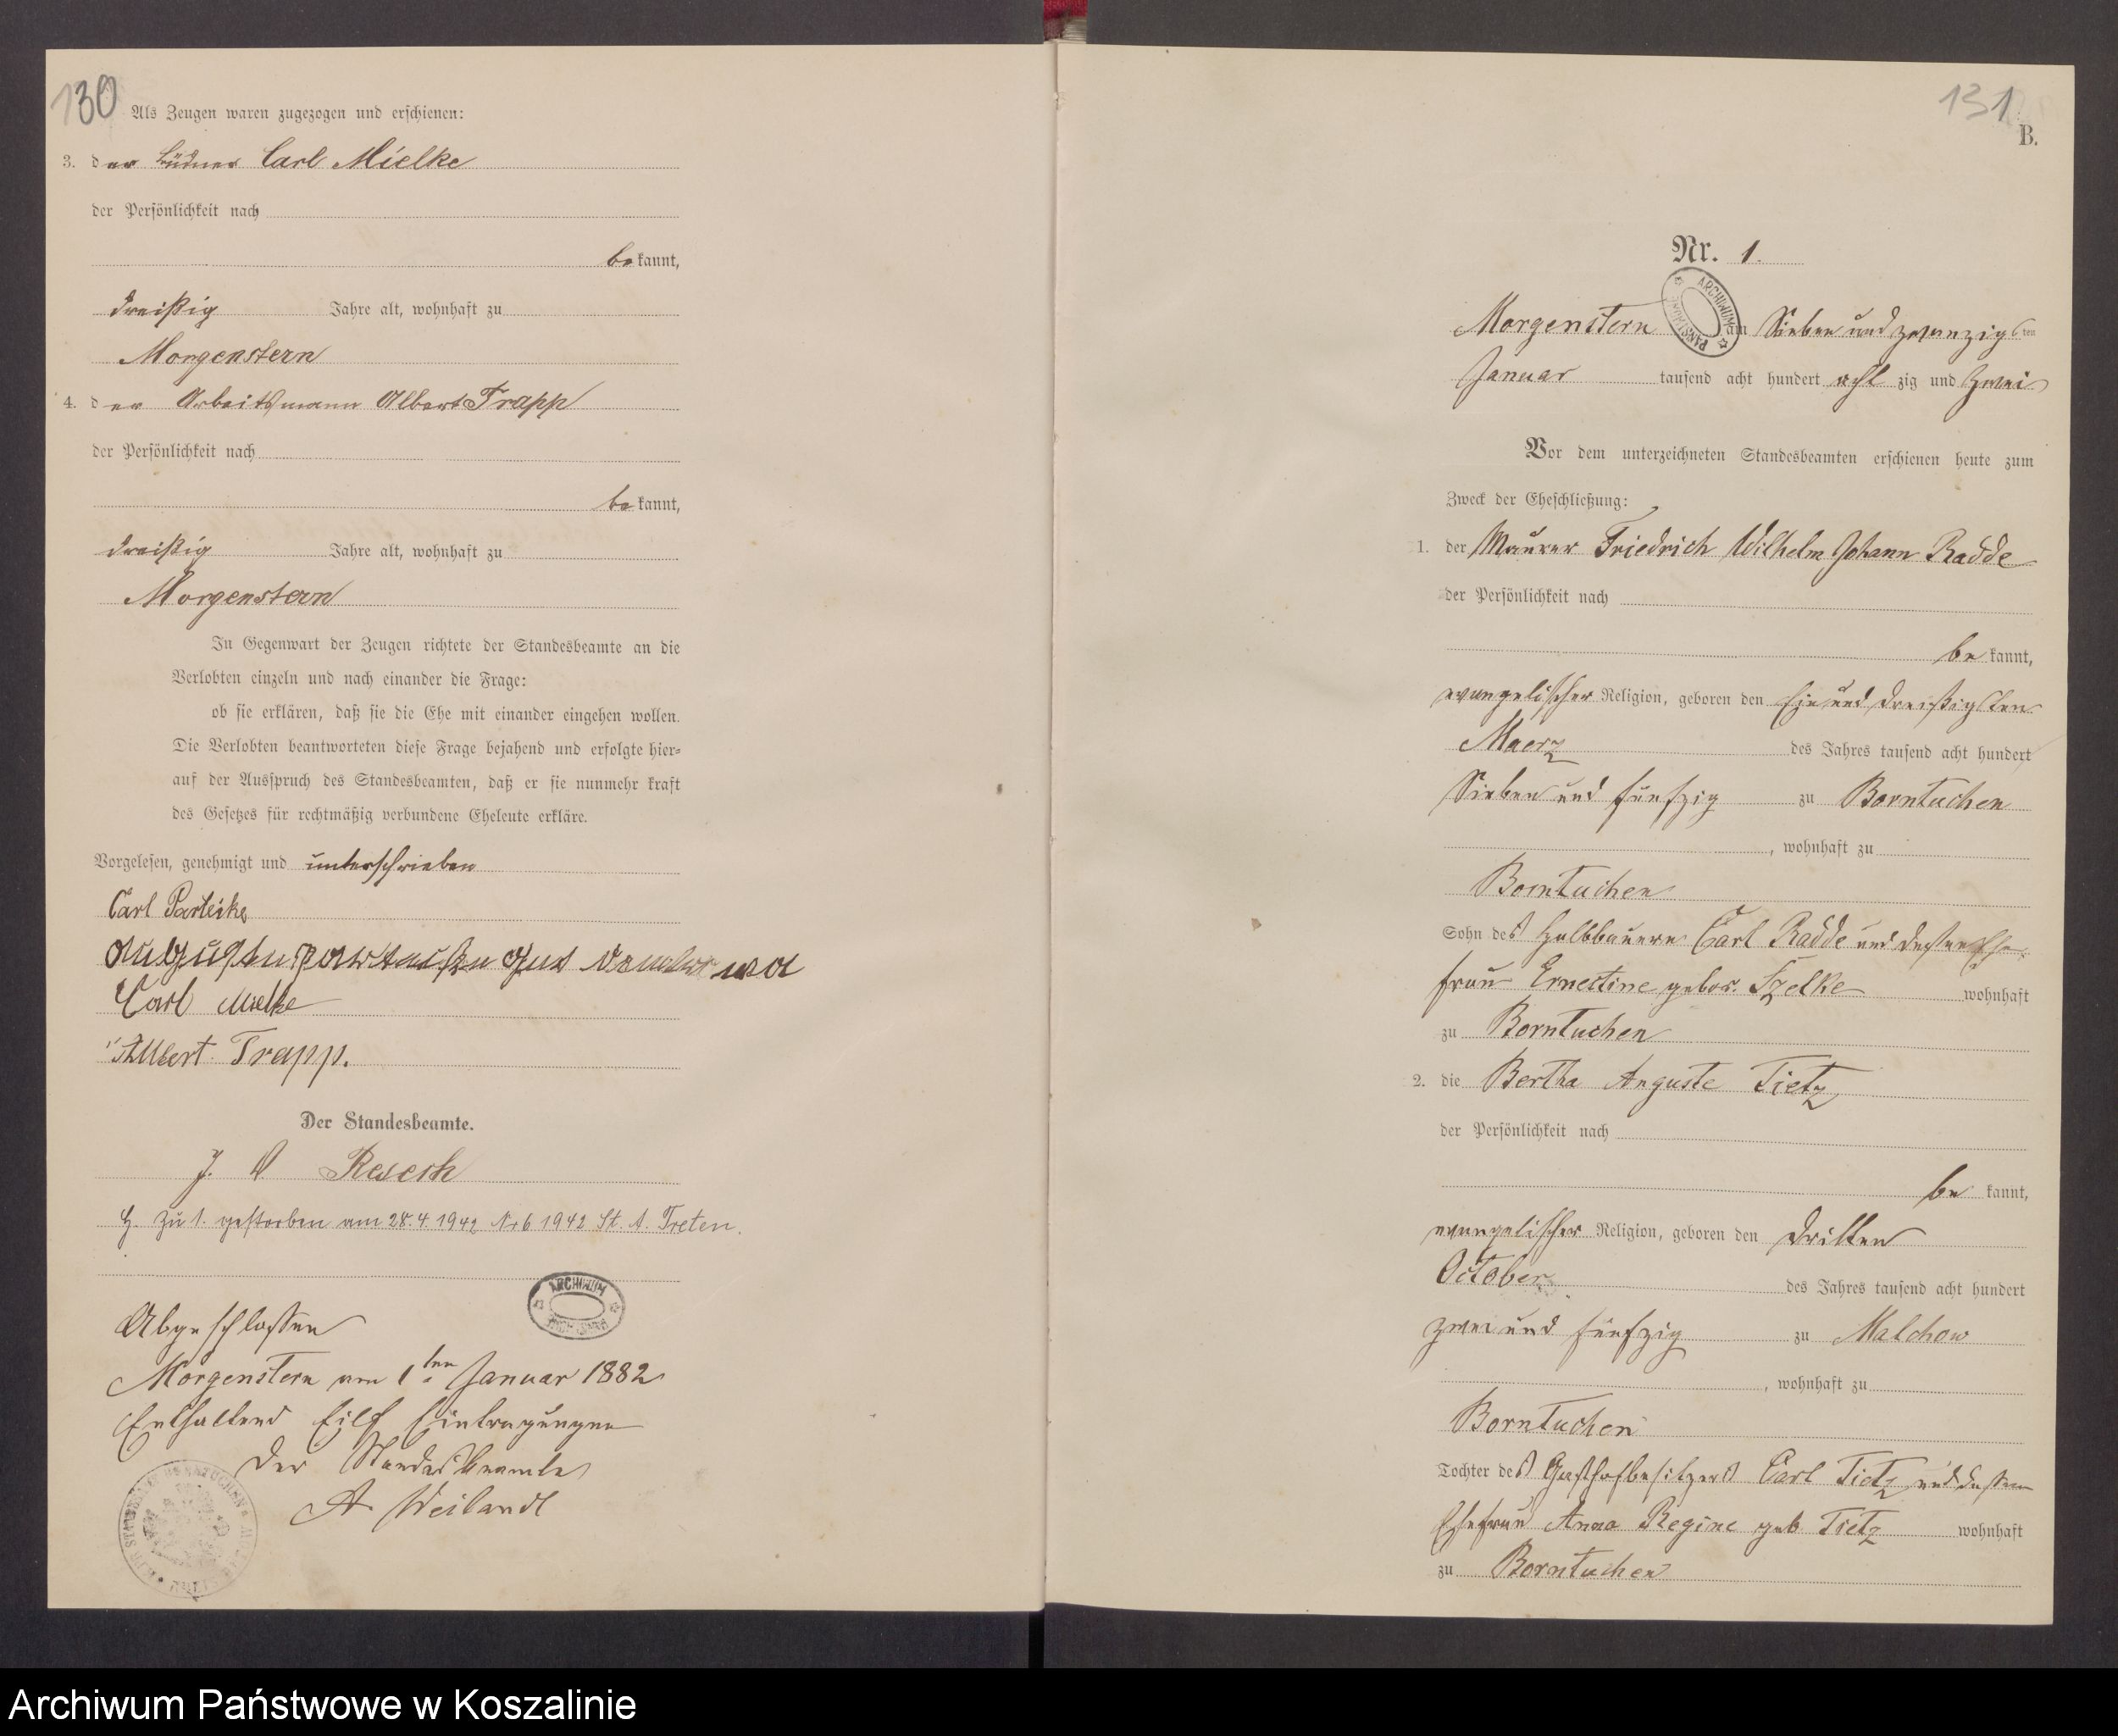 130
Als Zeugen waren zugezogen und erschienen:
3. der Büdner Carl Mielke
der Persönlichkeit nach
bekannt,
dreißig Jahre alt, wohnhaft zu
Morgenstern
4. der Arbeitsmann Albert Trapp
der Persönlichkeit nach
bekannt,
dreißig Jahre alt, wohnhaft zu
Morgenstern
In Gegenwart der Zeugen richtete der Standesbeamte an die
Verlobten einzeln und nach einander die Frage:
ob sie erklären, daß sie die Ehe mit einander eingehen wollen.
Die Verlobten beantworteten diese Frage bejahend und erfolgte hier-
auf der Ausspruch des Standesbeamten, daß er sie nunmehr kraft
des Gesetzes für rechtmäßig verbundene Eheleute erkläre.
Vorgelesen, genehmigt und unterschrieben
Carl
Carl Mielke
Albert Trapp.
Der Standesbeamte.
J. V
zu 1. gestorben am 28.4.1942 Nr 6 1942 St. A. Treten.
ARCHIWUM
Abgeschlossen
Morgenstern am 1ten Januar 1882
Enthaltend Eilf Eintragungen
Der Standesbeamte
A. Weilandt
131
B.
Nr. 1.
ARCHIWUM PAŃSTWOWE
Morgenstern am Sieben und zwanzigsten
Januar tausend acht hundert achtzig und zwei
Vor dem unterzeichneten Standesbeamten erschienen heute zum
Zweck der Eheschließung:
1. der Maurer Friedrich Wilhelm Johann Radde
der Persönlichkeit nach
bekannt,
evangelischer Religion, geboren den Ein und dreißigsten
Maerz des Jahres tausend acht hundert
Sieben und fünfzig zu Borntuchen
, wohnhaft zu
Borntuchen
Sohn des Halbbauern Carl Radde und dessen Ehe-
frau Ernestine gebor. wohnhaft
zu Borntuchen
2. die Bertha Auguste Tietz
der Persönlichkeit nach
bekannt,
evangelischer Religion, geboren den dritten
October des Jahres tausend acht hundert
zwei und fünfzig zu Malchow
, wohnhaft zu
Borntuchen
Tochter des Gasthofbesitzers Carl Tietz und dessen
Ehefrau Anna Regine geb Tietz wohnhaft
zu Borntuchen
Archiwum Państwowe w Koszalinie